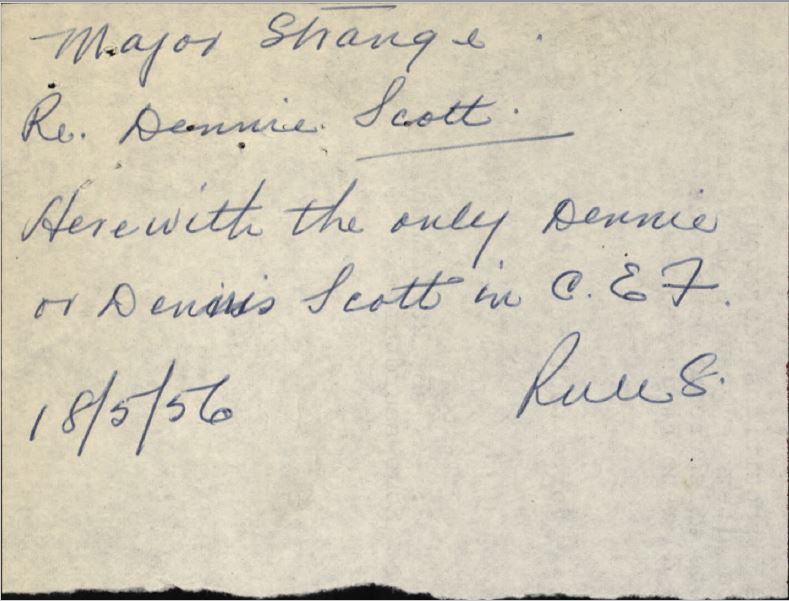 Major Strange.
Re. Dennie Scott.
Herewith the only Dennie
or Dennis Scott in C.E.F.
18/5/56